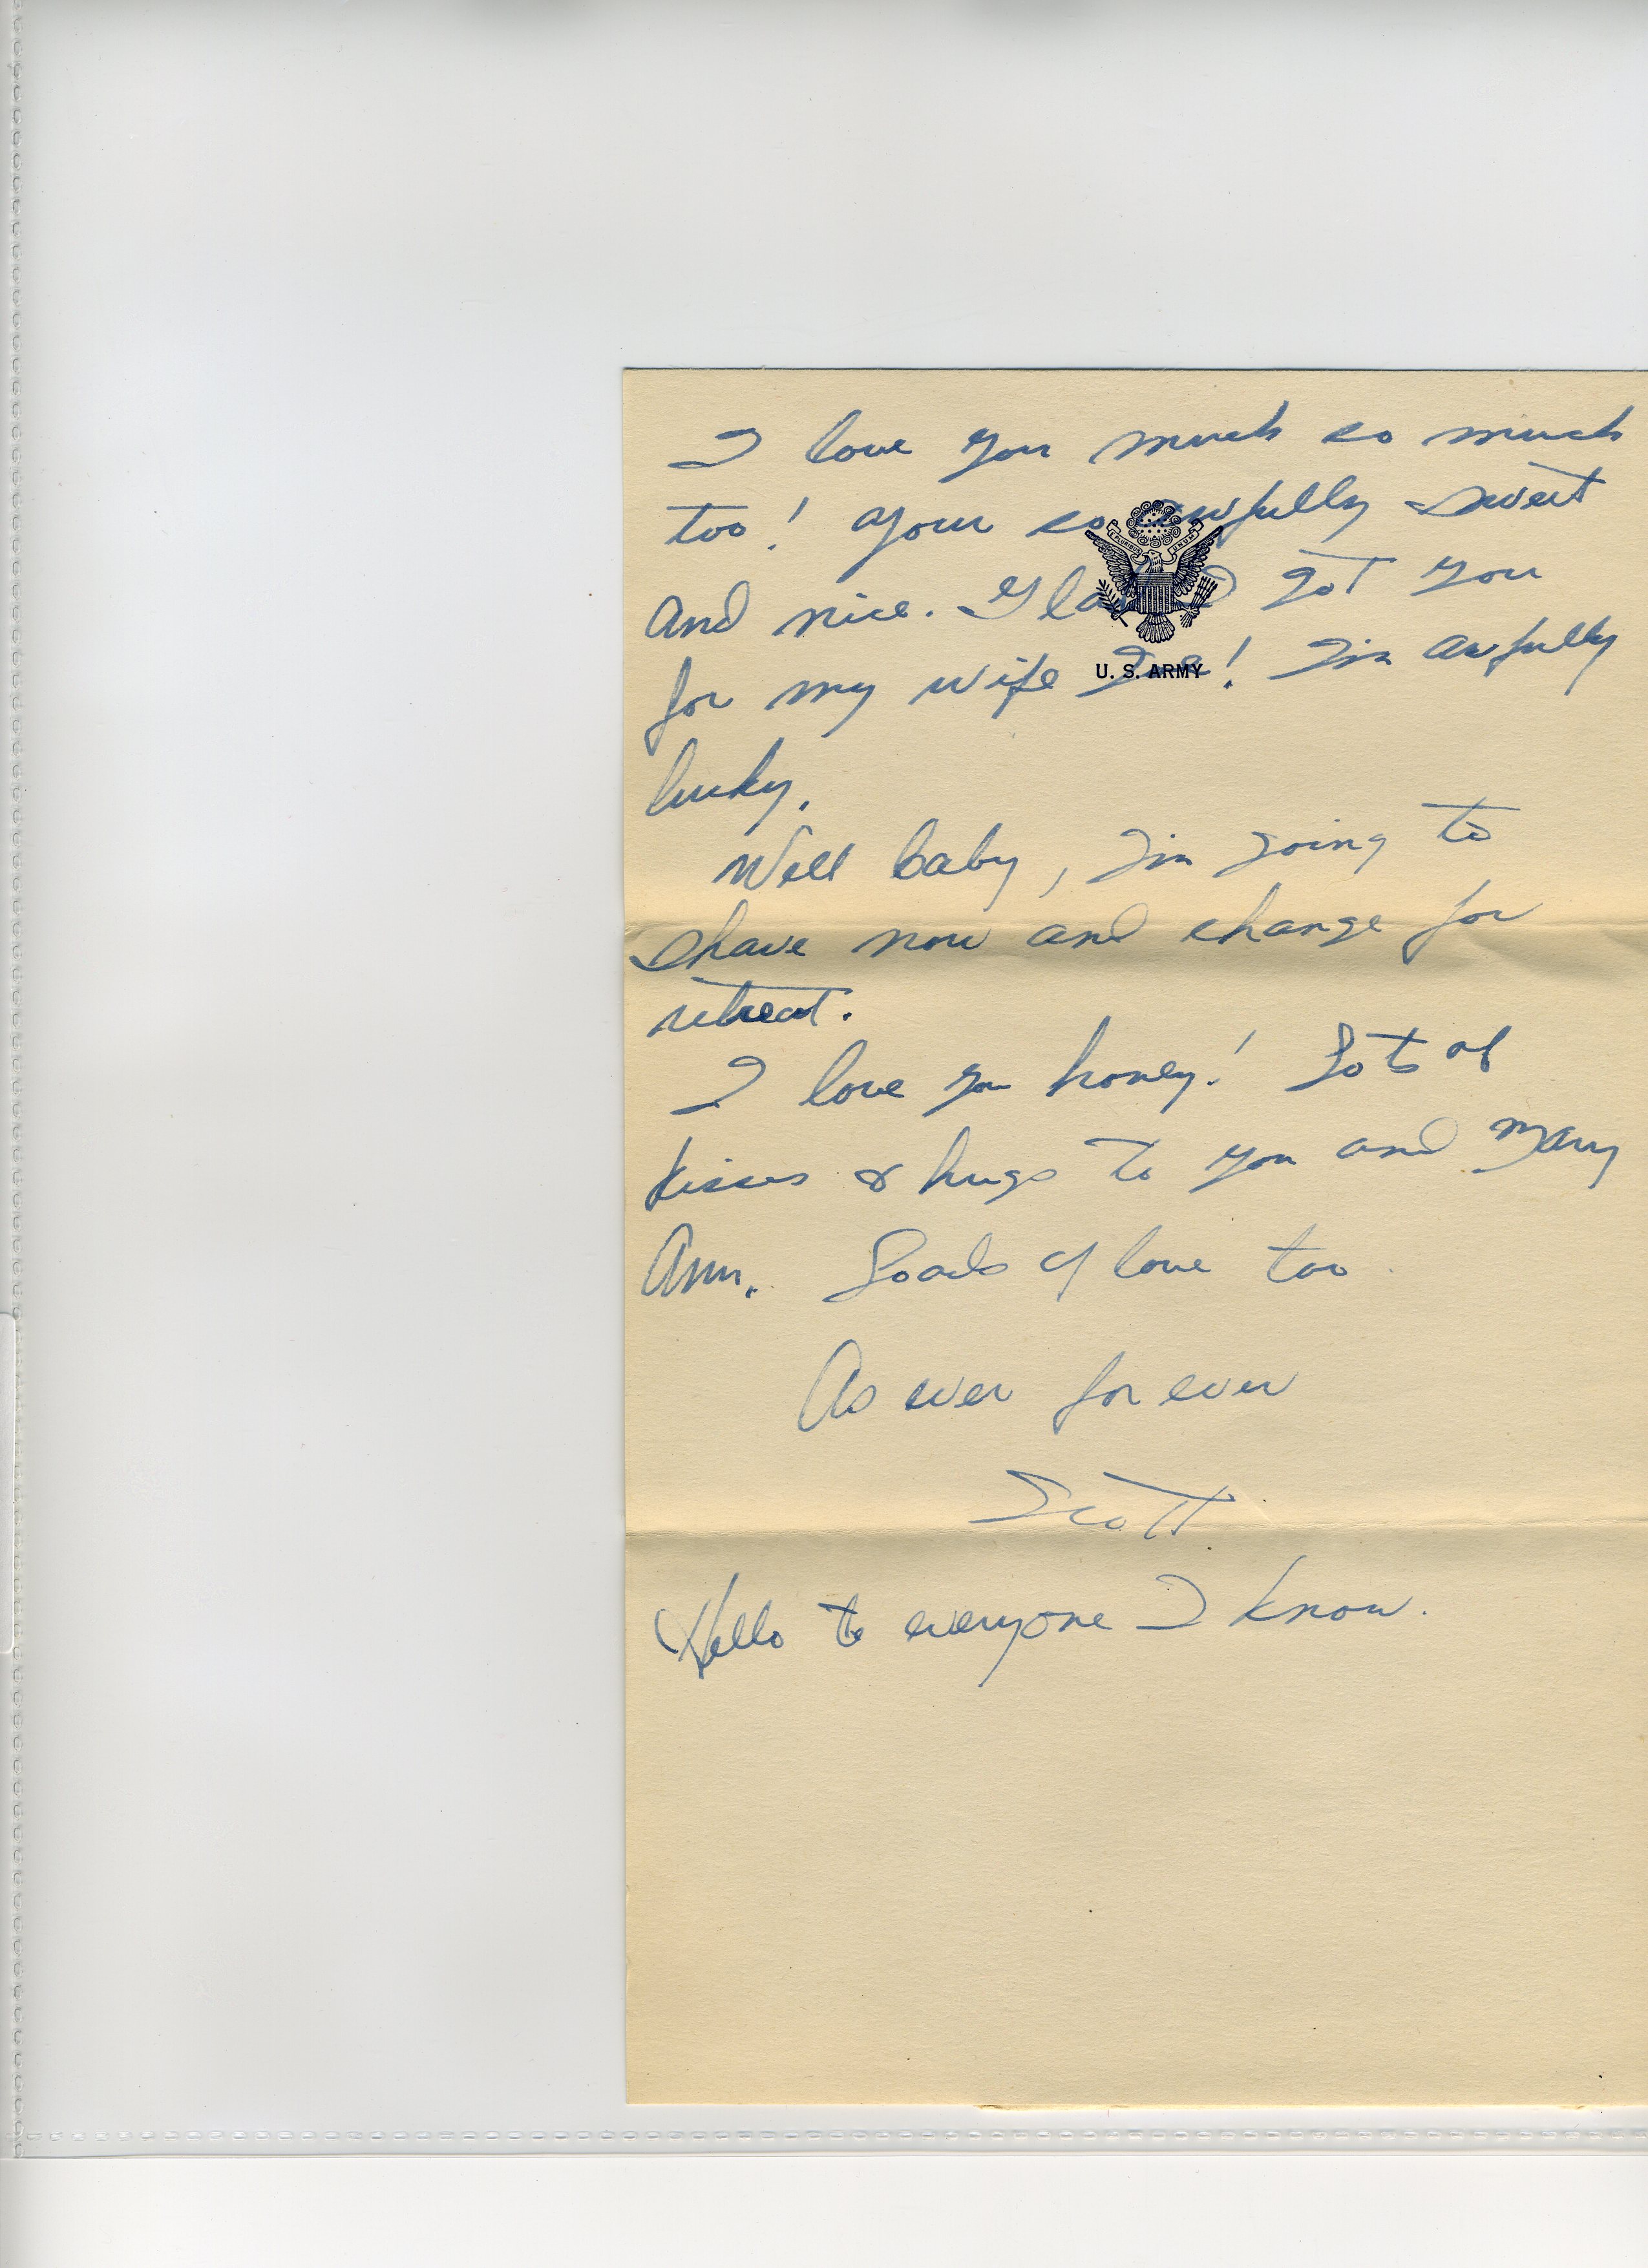 I love you much so much
too! Your so awfully sweet
E PLURIBUS UNUM
and nice. Glad I got you
for my wife ! I'm awfully
U. S. ARMY
lucky.
Well baby, I'm going to
shave now and change for
retreat.
I love you honey! Lots of
kisses & hugs to you and Mary
Ann. Loads of love too.
As ever for ever
Scott
Hello to everyone I know.